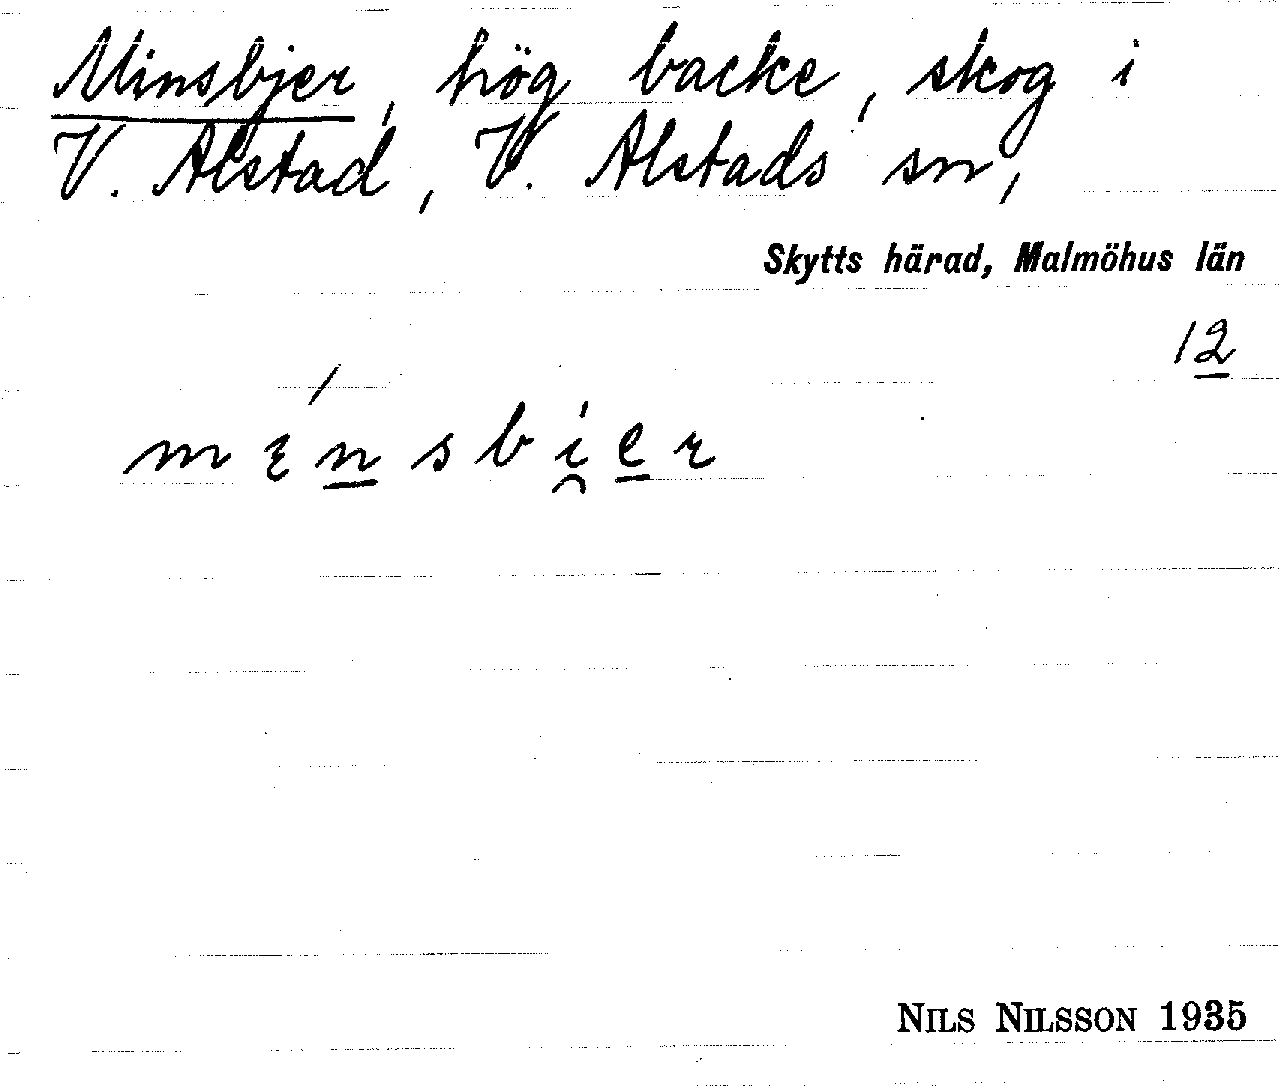 Minsbjer, hög backe, skog i
V. Alstad, V. Alstads sn,
Skytts härad, Malmöhus län
12
mɛńsbi̯er
NILS NILSSON 1935